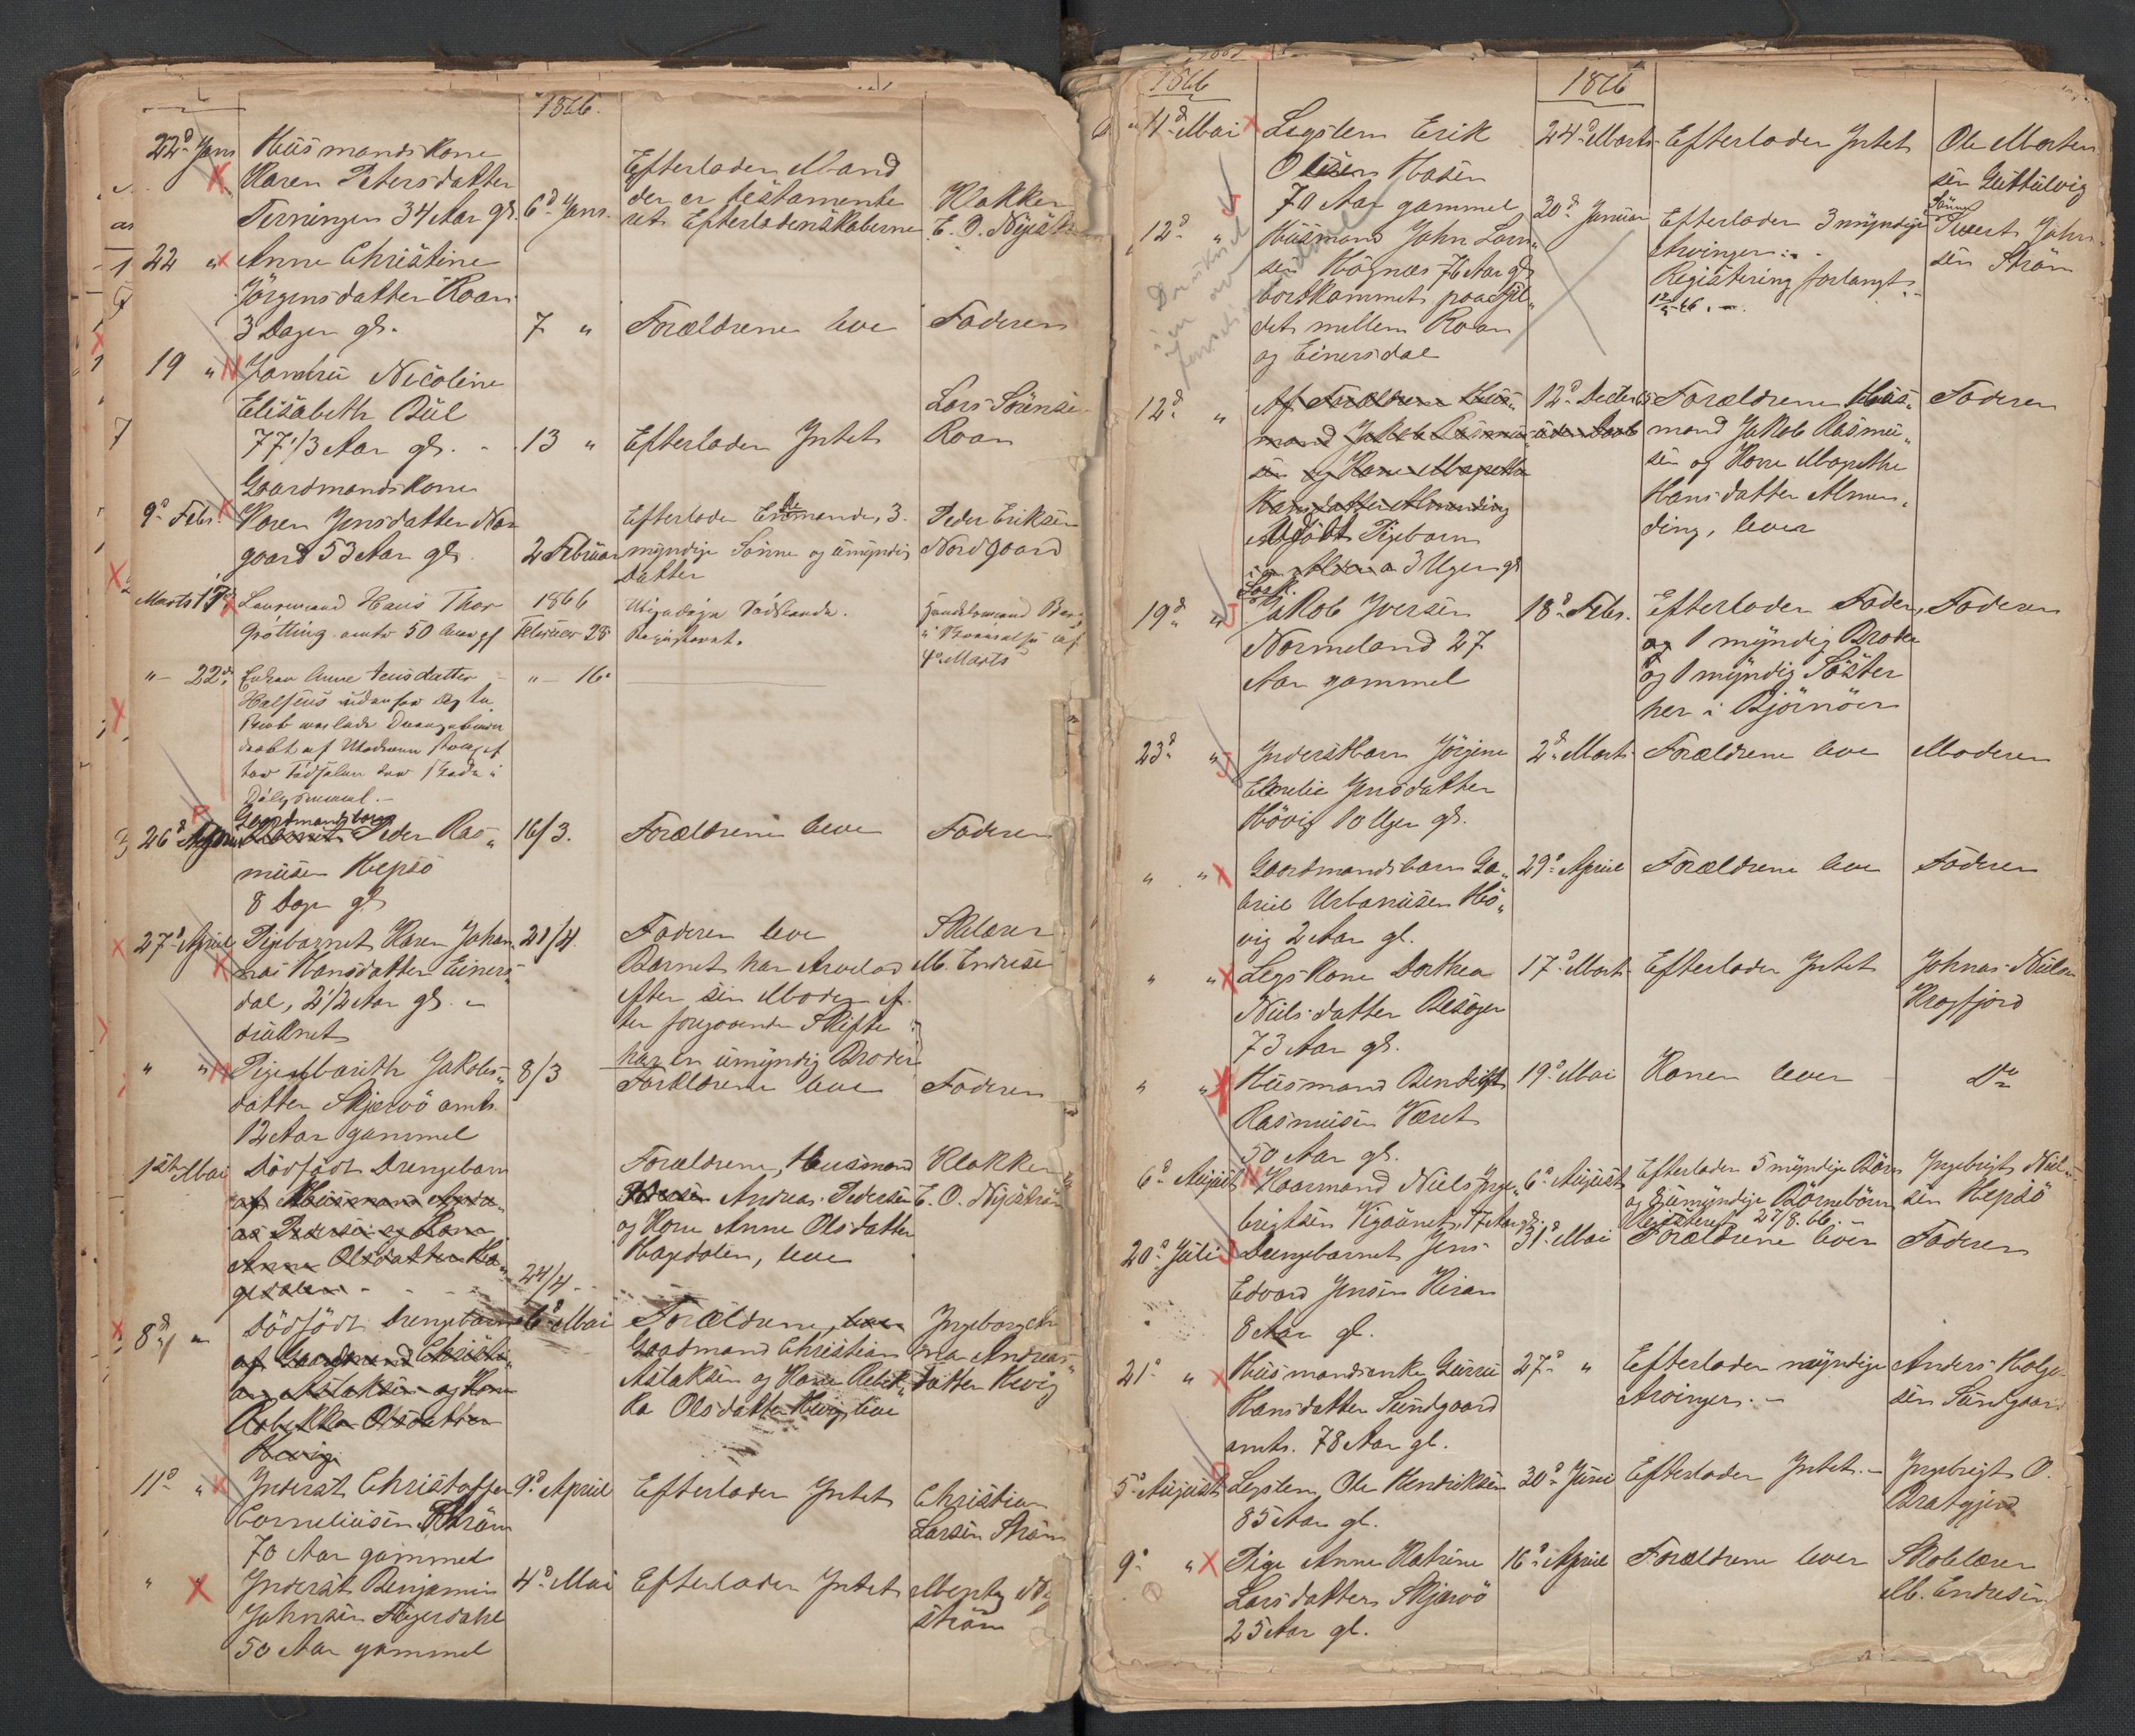 1866.
22d Janr Huusmandskone
Karen Petersdatter
Terningen 34 Aar gl. 6d Janr.
Efterlader Mand
der er testamente-
ret Efterladenskaberne
Klokker
E. O. Nyström
22 " Anne Christine
Jörgensdatter Roan
3 Dager gl. 7 " Forældrene leve Faderen
19 " Jomfru Nicoline
Elisabeth Bül
77 1/3 Aar gl. 13 " Efterlader Intet
Lars Sörensen
Roan
Gaardmandskone
9d Febr. Karen Jensdatter Nor
gaard 53 Aar gl. 2 Februar
Efterlader Enkemand, 3
myndige Sönner og umyndig
Datter
Peder Eriksen
Nordgaard
Marts 17d Hans Thor
Grötting omtr 50 Aar gl
1866
Februar 28
Registeret.
4d Marts
" 22d Enken Anne Jensdatter " 16d
Halsens udenfor
26d April Gaardmandsbarn
Peder Ras-
musen Hepsö
8 Dage gl
16/3. Forældrene leve Faderen
27d April Pigebarnet Karen Johan-
na Hansdatter Einers-
dal, 2 1/2 Aar gl.
druknet
21/4. Faderen leve
Barnet har Arvelod
efter sin Moder ef-
ter foregaaende Skifte
har en umyndig Broder
Skolelærer
M. Endresen
" " Pige Marith Jakobs-
datter Skjærvö omtr.
12 Aar gammel
8/3 Forældrene leve Faderen
1ste Mai Dödfödt Drengebarn
af Huusmand Andre-
as Pedersen og Kone
Anne Olsdatter Ha-
gedalen
24/4
Forældrene, Husmand
Andreas Pedersen
og Kone Anne Olsdatter
Hagedalen, leve
Klokker
E. O. Nyström
8d " Dödfödt Drengebarn
af Gaardmand Christi-
an Aslaksen og Kone
Rebekka Olsdatter
Hevig
6d Mai Forældrene, leve
Gaardmand Christian
Aslaksen og Kone Rebek-
ka Olsdatter Hevig leve
Ingeborg An
na Andreas-
datter Hevig
11d " Inderst Christoffer
Corneliusen Ström
70 Aar gammel
9d April Efterlader Intet
Christian
Larsen Ström
" " Inderst Benjamin
Johnsen Fagerdahl
50 Aar gammel
4d Mai Efterlader Intet
Mentz Ny
ström
1866
1866
11d Mai Legslem Erik
Olsen Hasen
70 Aar gammel
24d Marts Efterlader Intet
Ole Morten
sen Guttelvig
12d " Huusmand John Lorn-
sen Hognæs 76 Aar gl
bortkommet paa Fjel-
det mellem Roan
og Einersdal
20d Januar Efterlader 3 myndige
Arvinger.
Registering forlangt
12/5 66.
Sönnen
Sivert John-
sen Ström
12d " Af Forældrene Huus-
mand Jakob Rasmu-
sen og Kone Margrethe
Hansdatter Almending
Udöbt Pigebarn
i en Alder a 3 Uger gl
12d Decbr 65
uden Daab
Forældrene Huus-
mand Jakob Rasmu-
sen og Kone Magrethe
Hansdatter Almen-
ding, lever
Faderen
19d " Jakob Iversen
Normeland 27
Aar gammel
18d Febr. Efterlader Fader,
og 1 myndig Broder
og 1 myndig Söster
her i Björnöer
Faderen
23d " Inderstbarn Jörgine
Emelie Jensdatter
Hövig 10 Uger gl.
2d Marts Forældrene leve Moderen
" " Gaardmandsbarn Ga-
briel Urbanusen Hö-
vig 2 Aar gl.
29d April Forældrene leve Faderen
" " Legskone Dorthea
Nielsdatter Besager
73 Aar gl.
17d Marts Efterlader Intet
Johnas Nielsen
Kragfjord
" " Huusmand Bendigt
Rasmusen Været
50 Aar gl.
19d Mai Konen lever Do
6d August Kaarmand Niels Inge-
brigtsen Vigsünet, 77 Aar gl.
6d August Efterlader 5 myndige Börn
og 8 umyndige Börnebörn
Registeret 27/8. 66.
Ingebrigt Niel-
sen Hepsö
20d Juli Drengebarnet Jens
Edvard Jensen Kiran
8 Aar gl.
31d Mai Forældrene leve Faderen
21d " Huusmandsenke Gurru
Hansdatter Sundgaard
omtr. 78 Aar gl.
27d " Efterlader myndige
Arvinger.
Anders Holge-
sen Sundgaard
5d August Legslem Ole Hendriksen
85 Aar gl.
30d Juni Efterlader Intet.
Ingebrigt O.
Bratgjerd
9d " Pige Anne Katrine
Larsdatter Skjærvö
25 Aar gl.
16d April Forældrene lever
Skolelærer
M. Endresen